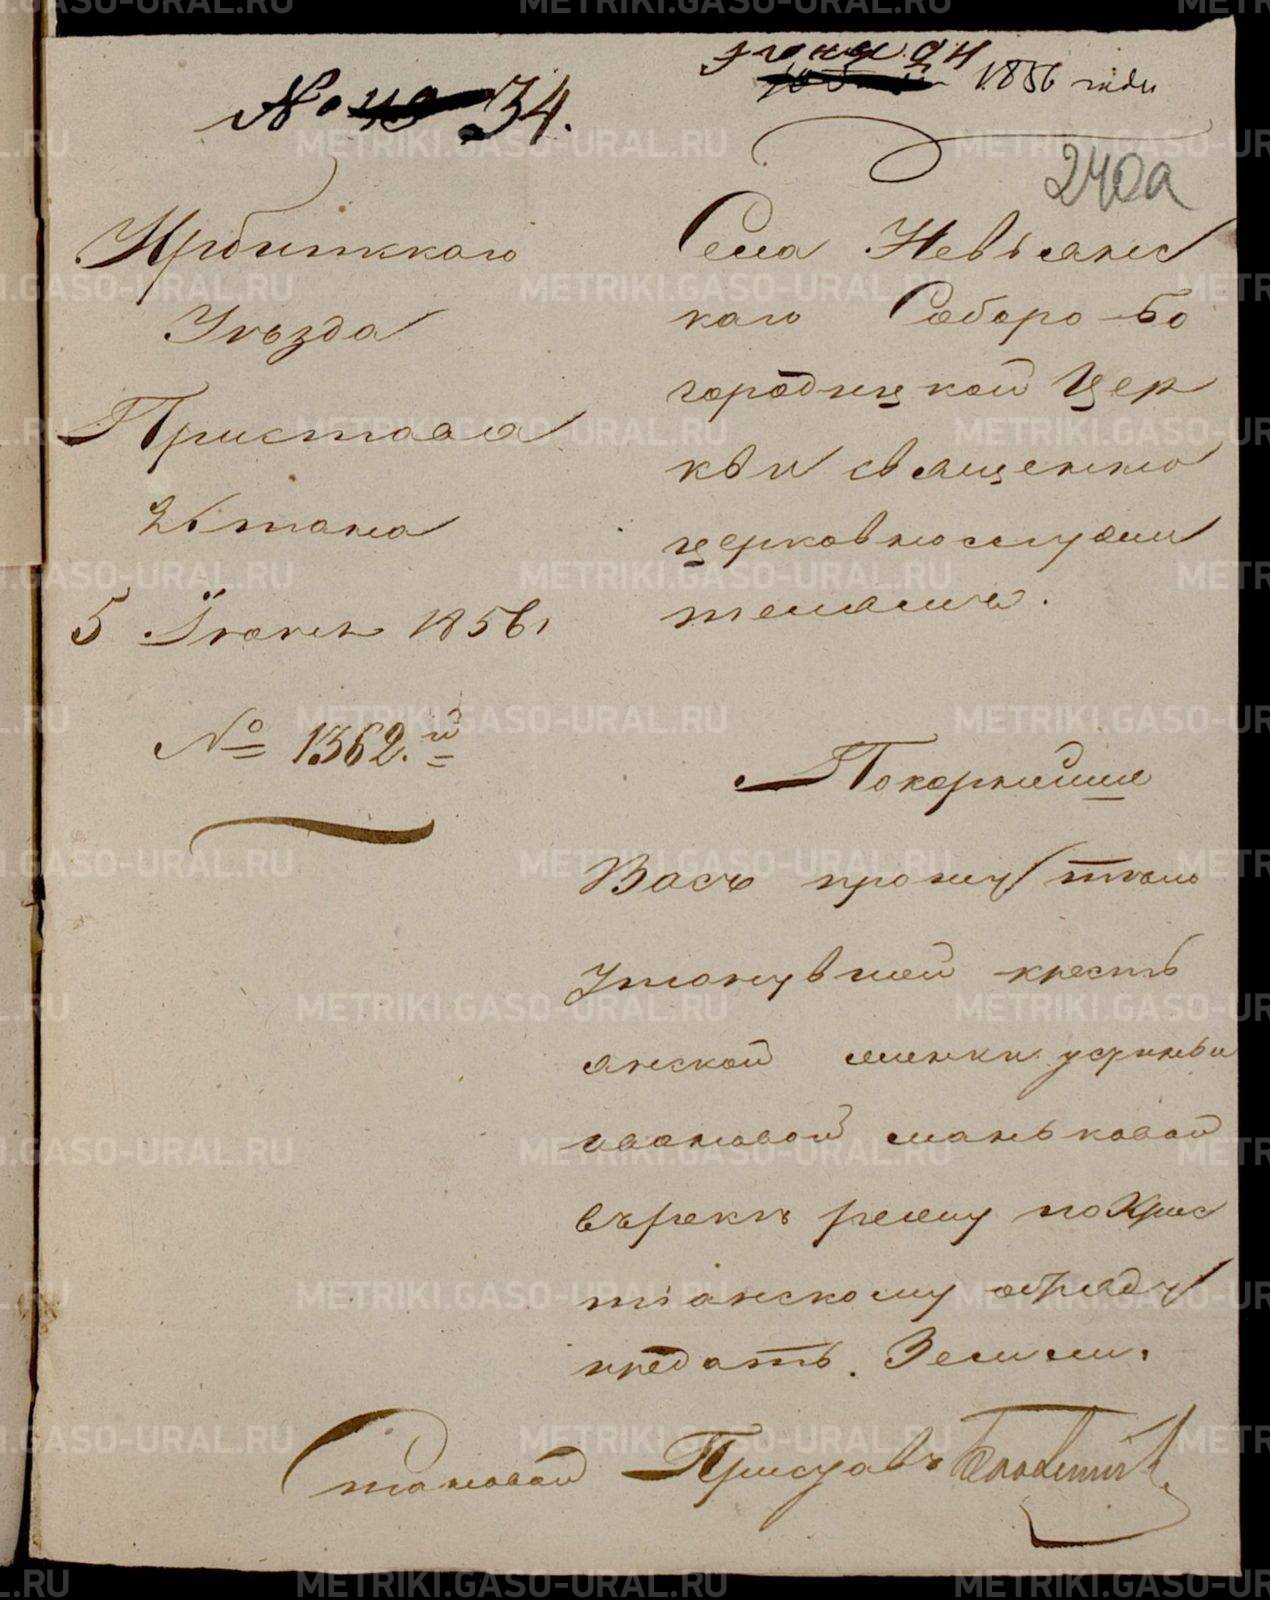 № 34.
1856 года
240а
Ирбитскаго
Уѣзда
Пристава
2 стана
5 Іюня 1856
№ 1362.й
Села Невьянс
каго Соборо-Бо
городицкой Цер
кви священно
церковнослужи
телямъ.
Покорнейше
Васъ прошу тело
утонувшей кресть
янской женки устиньи
маньковой
въ рекѣ режу по Хрис
тіанскому обряду
предать Земли.
Становой Приставъ
METRIKI.GASO-URAL.RU